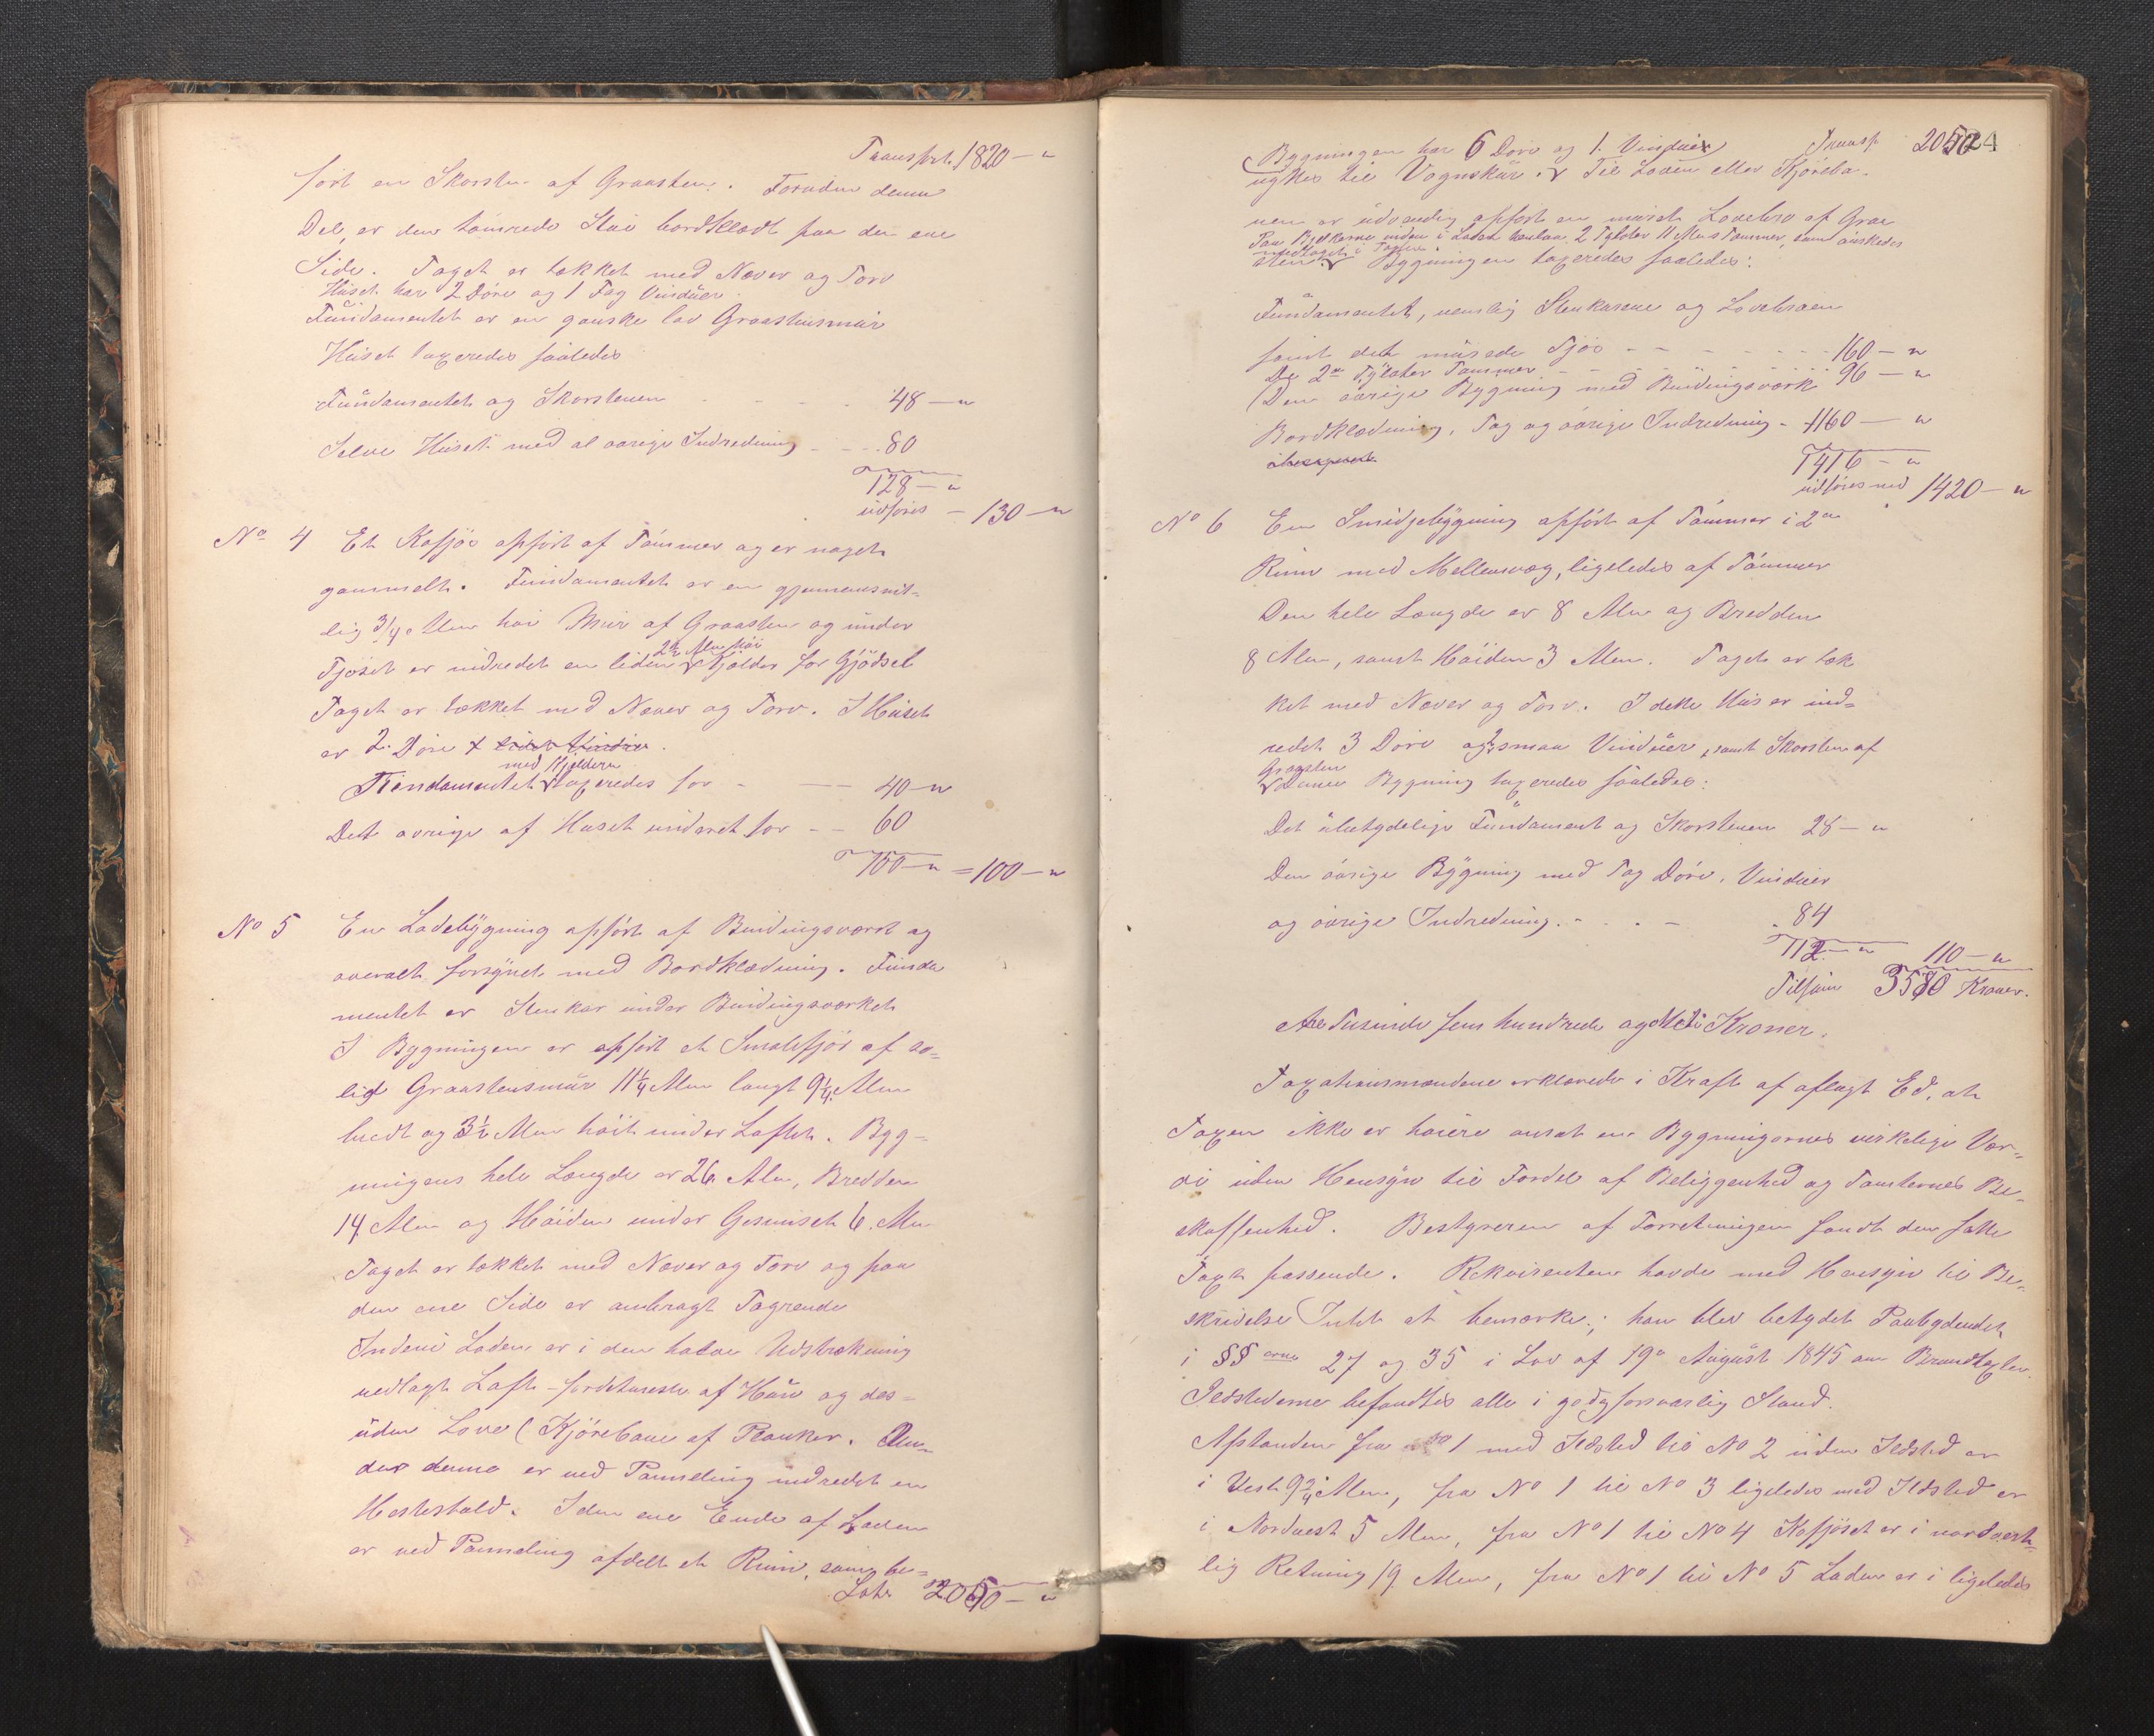 Transpt. 1820 – "
ført en Skorsten af Graasten. Foruden denne
Del, er den tømrede Stue bordklædt paa den ene
Side. Taget er tækket med Næver og Torv
Huset har 2 Døre og 1 Fag Vinduer
Fundamentet er en ganske lav Graastensmur
Huset taxeredes saaledes
Fundamentet og Skorstenen - - - 48 – "
Selve Huset med al øvrige Indredning - - - 80
128 – "
udføres – 130 – "
No 4 Et Kofjøs opført af Tømmer og er noget
gammelt. Fundamentet er en gjennemsnit-
lig 3/4 Alen høi Mur af Graasten og under
2½ Alen høi
Fjøset er indredet en liden Kjelder for Gjødsel
Taget er tækket med Næver og Torv. I Huset
er 2 Døre
med Kjelderen
Fundamentet taxeredes for - – 40 – "
Det øvrige af Huset vurderet for – – 60
100 – " = 100 – "
No 5 En Ladebygning opført af Bindingsværk og
overalt forsynet med Bordklædning. Funda
mentet er Stenkar under Bindingsværket
I Bygningen er opført et Smalefjøs af so-
lid Graastensmur 11¼ Alen langt 9¼ Alen
bredt og 3½ Alen høit under Loftet. Byg-
ningens hele Længde er 26 Alen, Bredden
14 Alen og Høiden under Gesimset 6 Alen
Taget er tækket med Næver og Torv og paa
den ene Side er anbragt Tagrende
Indeni Laden er i den halve Udstrækning
nedlagt Loft - fordetmeste af Hun og des-
uden Love (Kjørebane af Planker. Un-
der denne er ved Panneling indredet en
Hestestald. I den ene Ende af Laden
er ved Panneling afdelt et Rum, som be-
Lats 2050 – "
Bygningen har 6 Døre og 1 Vindue Transp 2050 – 24
nyttes til Vognskur. Til Laden eller Kjøreba-
nen er udvendig opført en muret Lovebro af Graa
Paa Bjelkerne inden i Laden henlaa 2 Tylvter 11 Alens Tømmer, som ønskedes
medtaget i Taxten.
sten. Bygningen taxeredes saaledes:
Fundamentet, nemlig Stenkarene og Lovebroen
samt det murede Fjøs - - - - - - 160 – "
De 2de Tylvter Tømmer - - - - - 96 – "
Den øvrige Bygning med Bindingsværk
Bordklædning, Tag og øvrige Indredning - 1160 – "
1416 – "
udføres med 1420 – "
No 6 En Smidjebygning opført af Tømmer i 2de
Rum med Mellemvæg, ligeledes af Tømmer
Den hele Længde er 8 Alen og Bredden
8 Alen, samt Høiden 3 Alen. Taget er tæk
ket med Næver og Torv. I dette Hus er ind-
redet 3 Døre og 2 smaa Vinduer, samt Skorsten af
Graasten
Denne Bygning taxeredes saaledes:
Det ubetydelige Fundament og Skorstenen 28 – "
Den øvrige Bygning med Tag Døre, Vinduer
og øvrige Indredning. - . . - . 84
112 – " 110 – "
Tilsam 3580 Kroner.
Tre Tusinde fem hundrede og Otti Kroner.
Taxationsmændene erklærede i Kraft af aflagt Ed, at
Taxen ikke er høiere ansat end Bygningernes virkelige Vær-
di uden Hensyn til Fordel af Beliggenhed og Tomternes Be-
skaffenhed. Bestyreren af Forretningen fandt den satte
Taxt passende. Rekvirenten havde med Hensyn til Be-
skrivelse Intet at bemærke; han blev betydet Paabydendet
i §§ erne 27 og 35 i Lov af 19de August 1845 om Brandtaxter.
Ildstederne befandtes alle i god forsvarlig Stand.
Afstanden fra No 1 med Ildsted til No 2 uden Ildsted er
i Vest 9¾ Alen, fra No 1 til No 3 ligeledes med Ildsted er
i Nordvest 5 Alen, fra No 1 til No 4 Kofjøset er i nordvest-
lig Retning 19 Alen, fra No 1 til No 5 Laden er i ligeledes